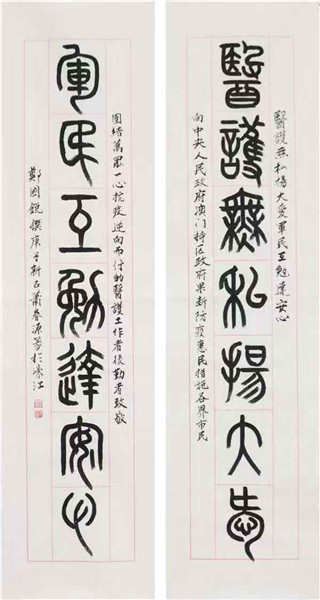 醫護無私揚大愛軍民互勉達安心
醫護無私揚大愛
向中央人民政府澳门特區政府果斷防疫惠民措施各界市民
團结萬眾一心抗疫逆向而行的醫護工作者後勤者致敬
軍民互勉達安心
鄭國銳撰庚子新正蕭春源書於濠江